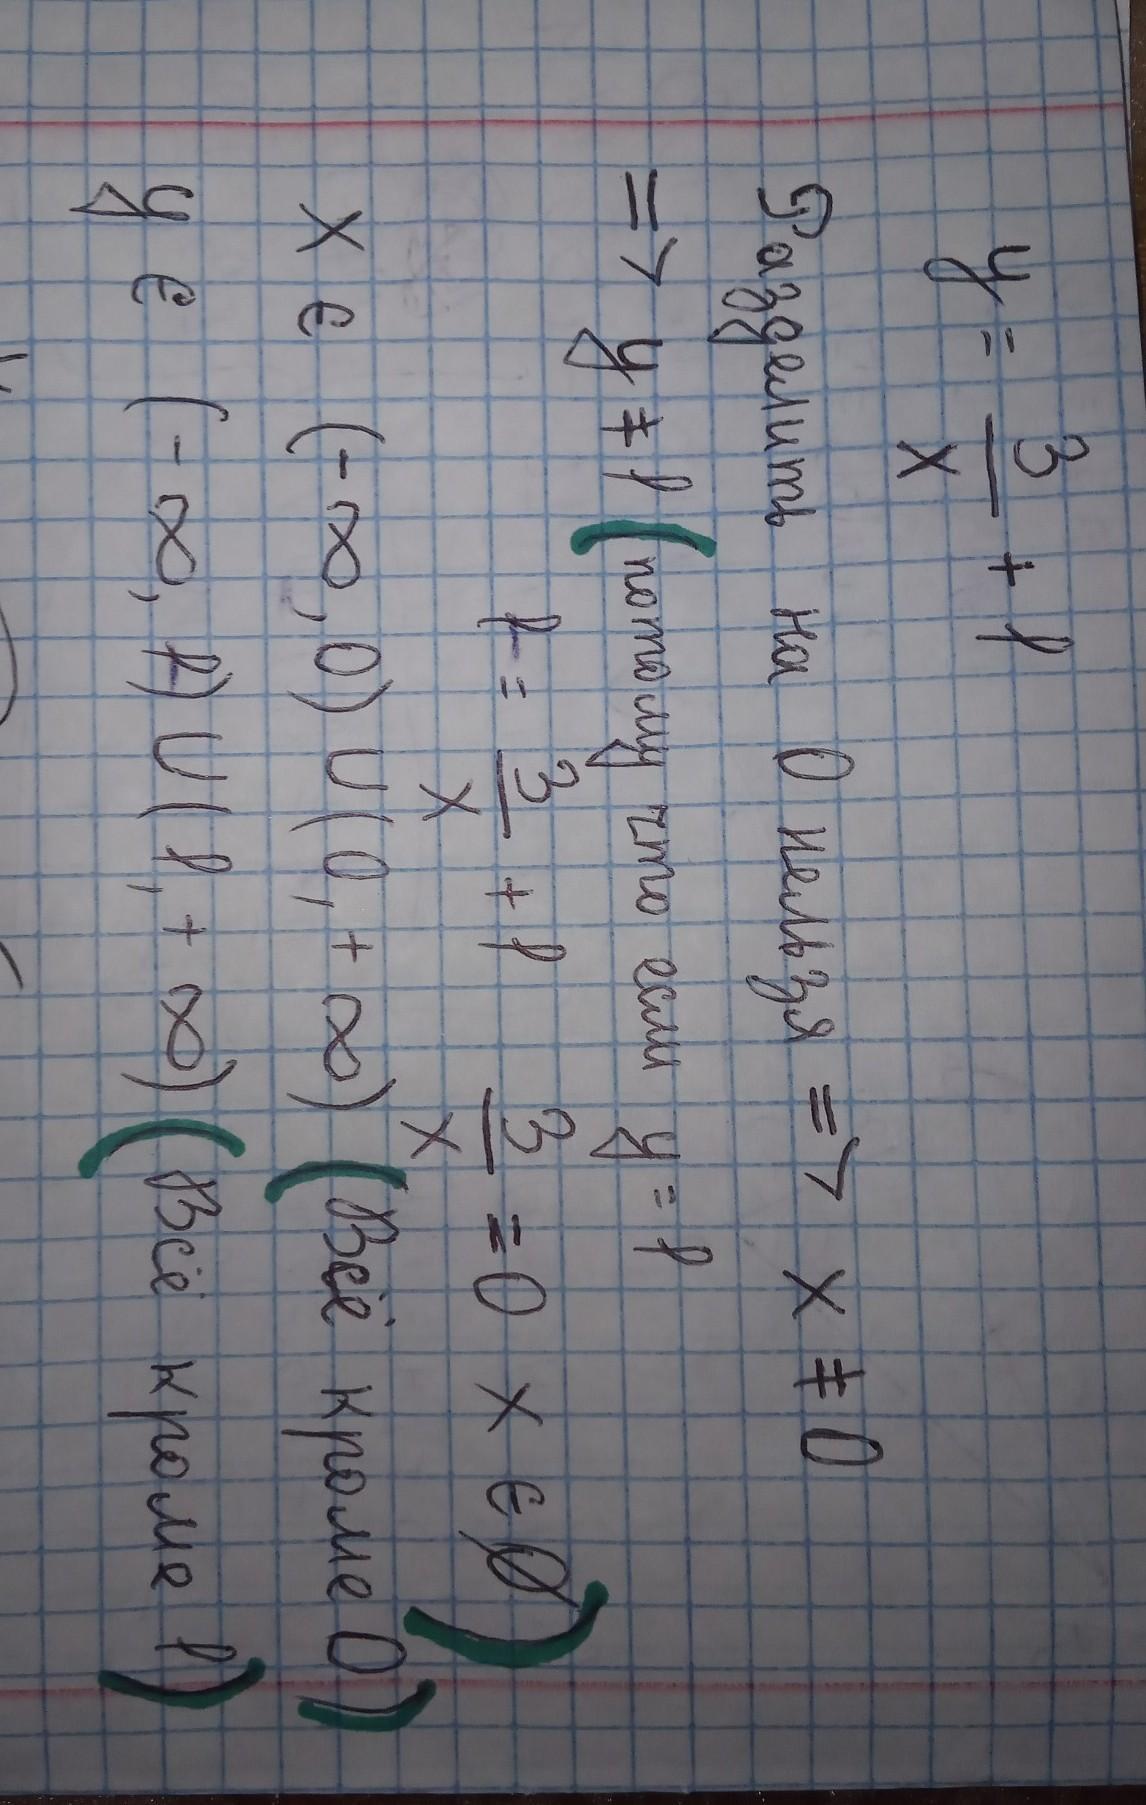 y = 3/x + 1
Разделить на 0 нельзя => x ≠ 0
=> y ≠ 1 (потому что если y = 1
1 = 3/x + 1 3/x = 0 x ∈ ∅)
x ∈ (-∞, 0) ∪ (0, +∞) (Всё кроме 0)
y ∈ (-∞, 1) ∪ (1, +∞) (Всё кроме 1)